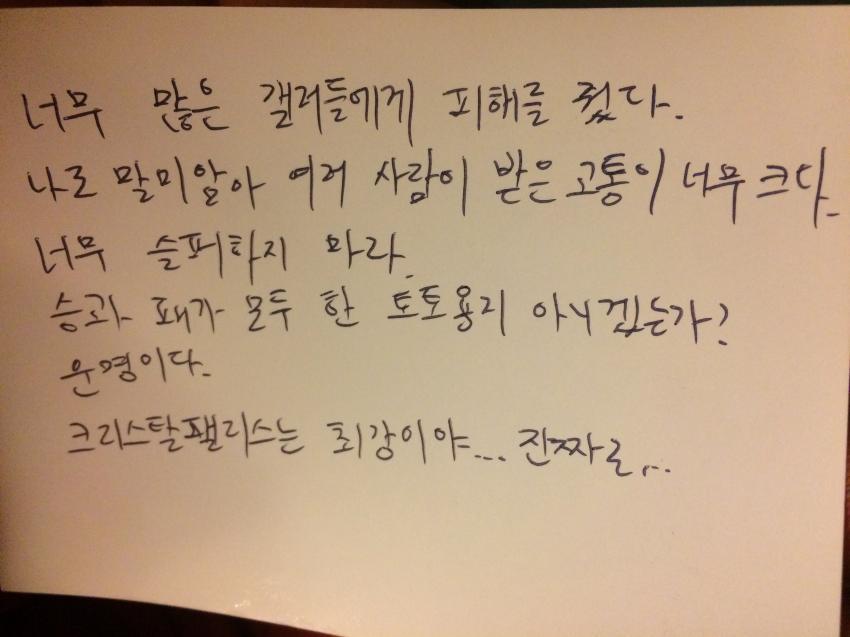 너무 많은 갤러들에게 피해를 줬다.
나로 말미암아 여러 사람이 받은 고통이 너무 크다.
너무 슬퍼하지 마라.
승과 패가 모두 한 토토용지 아니겠는가?
운명이다.
크리스탈팰리스는 최강이야... 진짜로...